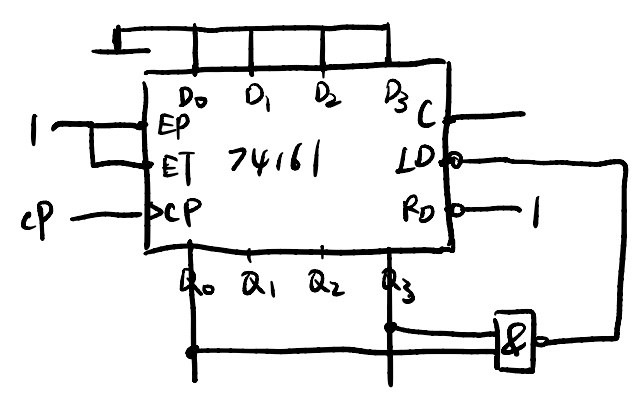 D₀ D₁ D₂ D₃
1 EP C
ET 74161 LD
CP CP RD 1
Q₀ Q₁ Q₂ Q₃
&